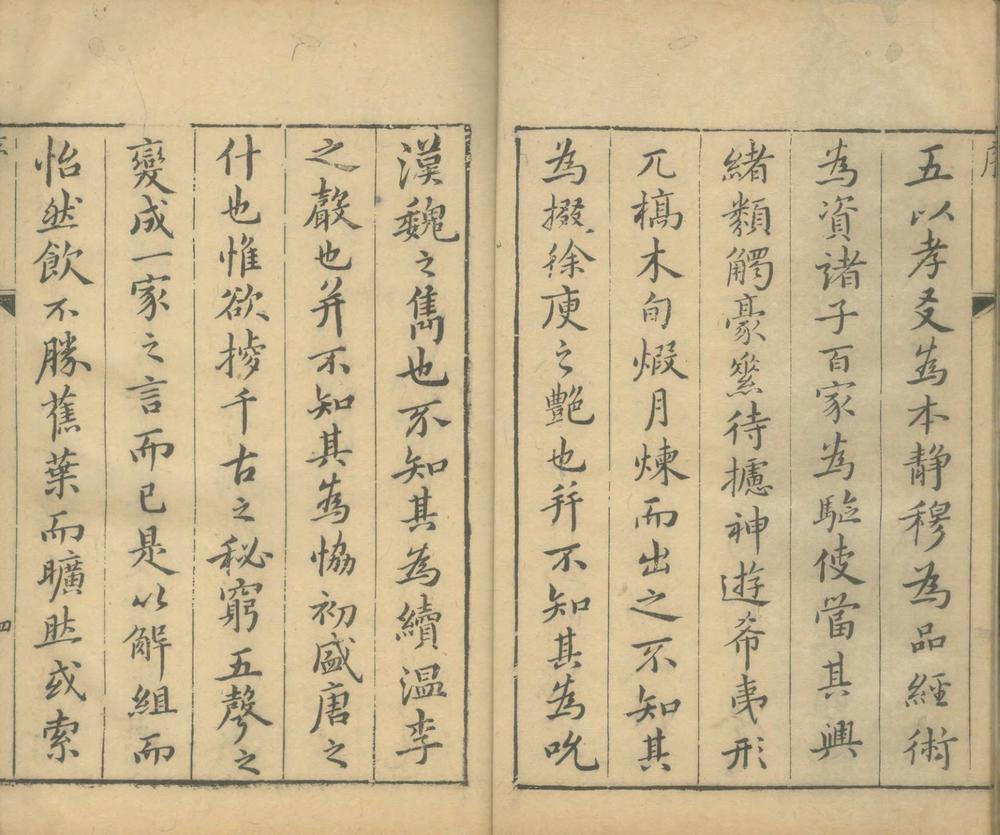 序
五以孝友為本靜穆為品經術
為資諸子百家為驅使當其興
緒類觸豪縈待攄神遊希夷形
兀槁木旬煆月煉而出之不知其
為掇徐庾之艷也并不知其為吮
漢魏之雋也不知其為續溫李
之聲也并不知其為恊初盛唐之
什也惟欲千古之秘窮五聲之
變成一家之言而已是以解組而
怡然飲不勝蕉葉而曠然或索
四